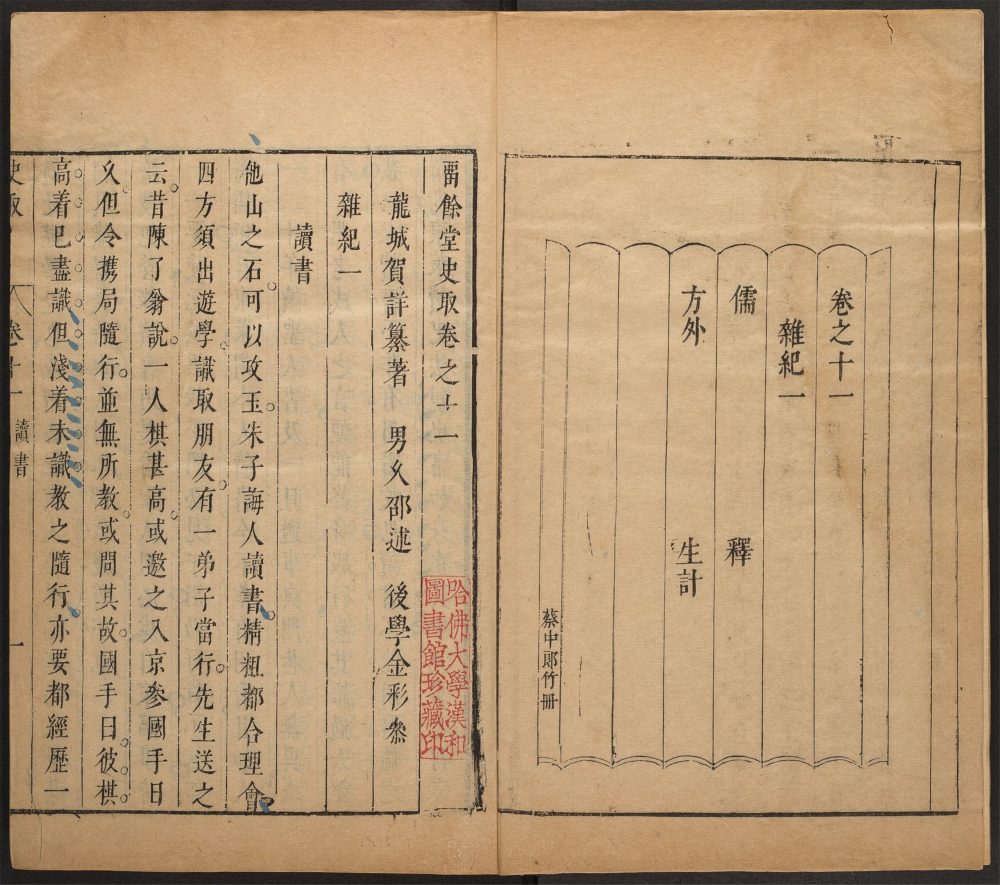 卷之十一
雜紀一
儒　釋
方外　生計
蔡中郎竹册
畱餘堂史取卷之十一
龍城賀詳纂著　男久邵述　後學金彩叅
哈佛大學漢和
圖書館珍藏印
雜紀一
讀書
他山之石可以攻玉。朱子誨人讀書。精粗都合理會。
四方須出遊學。識取朋友。有一弟子當行。先生送之
云。昔陳了翁說。一人棋甚高。或邀之入京參國手。日
久。但令攜局隨行。並無所教。或問其故。國手曰。彼棋。
高着已盡識。但淺着未識。教之隨行。亦要都經歷一
史取
卷十一　讀書　一